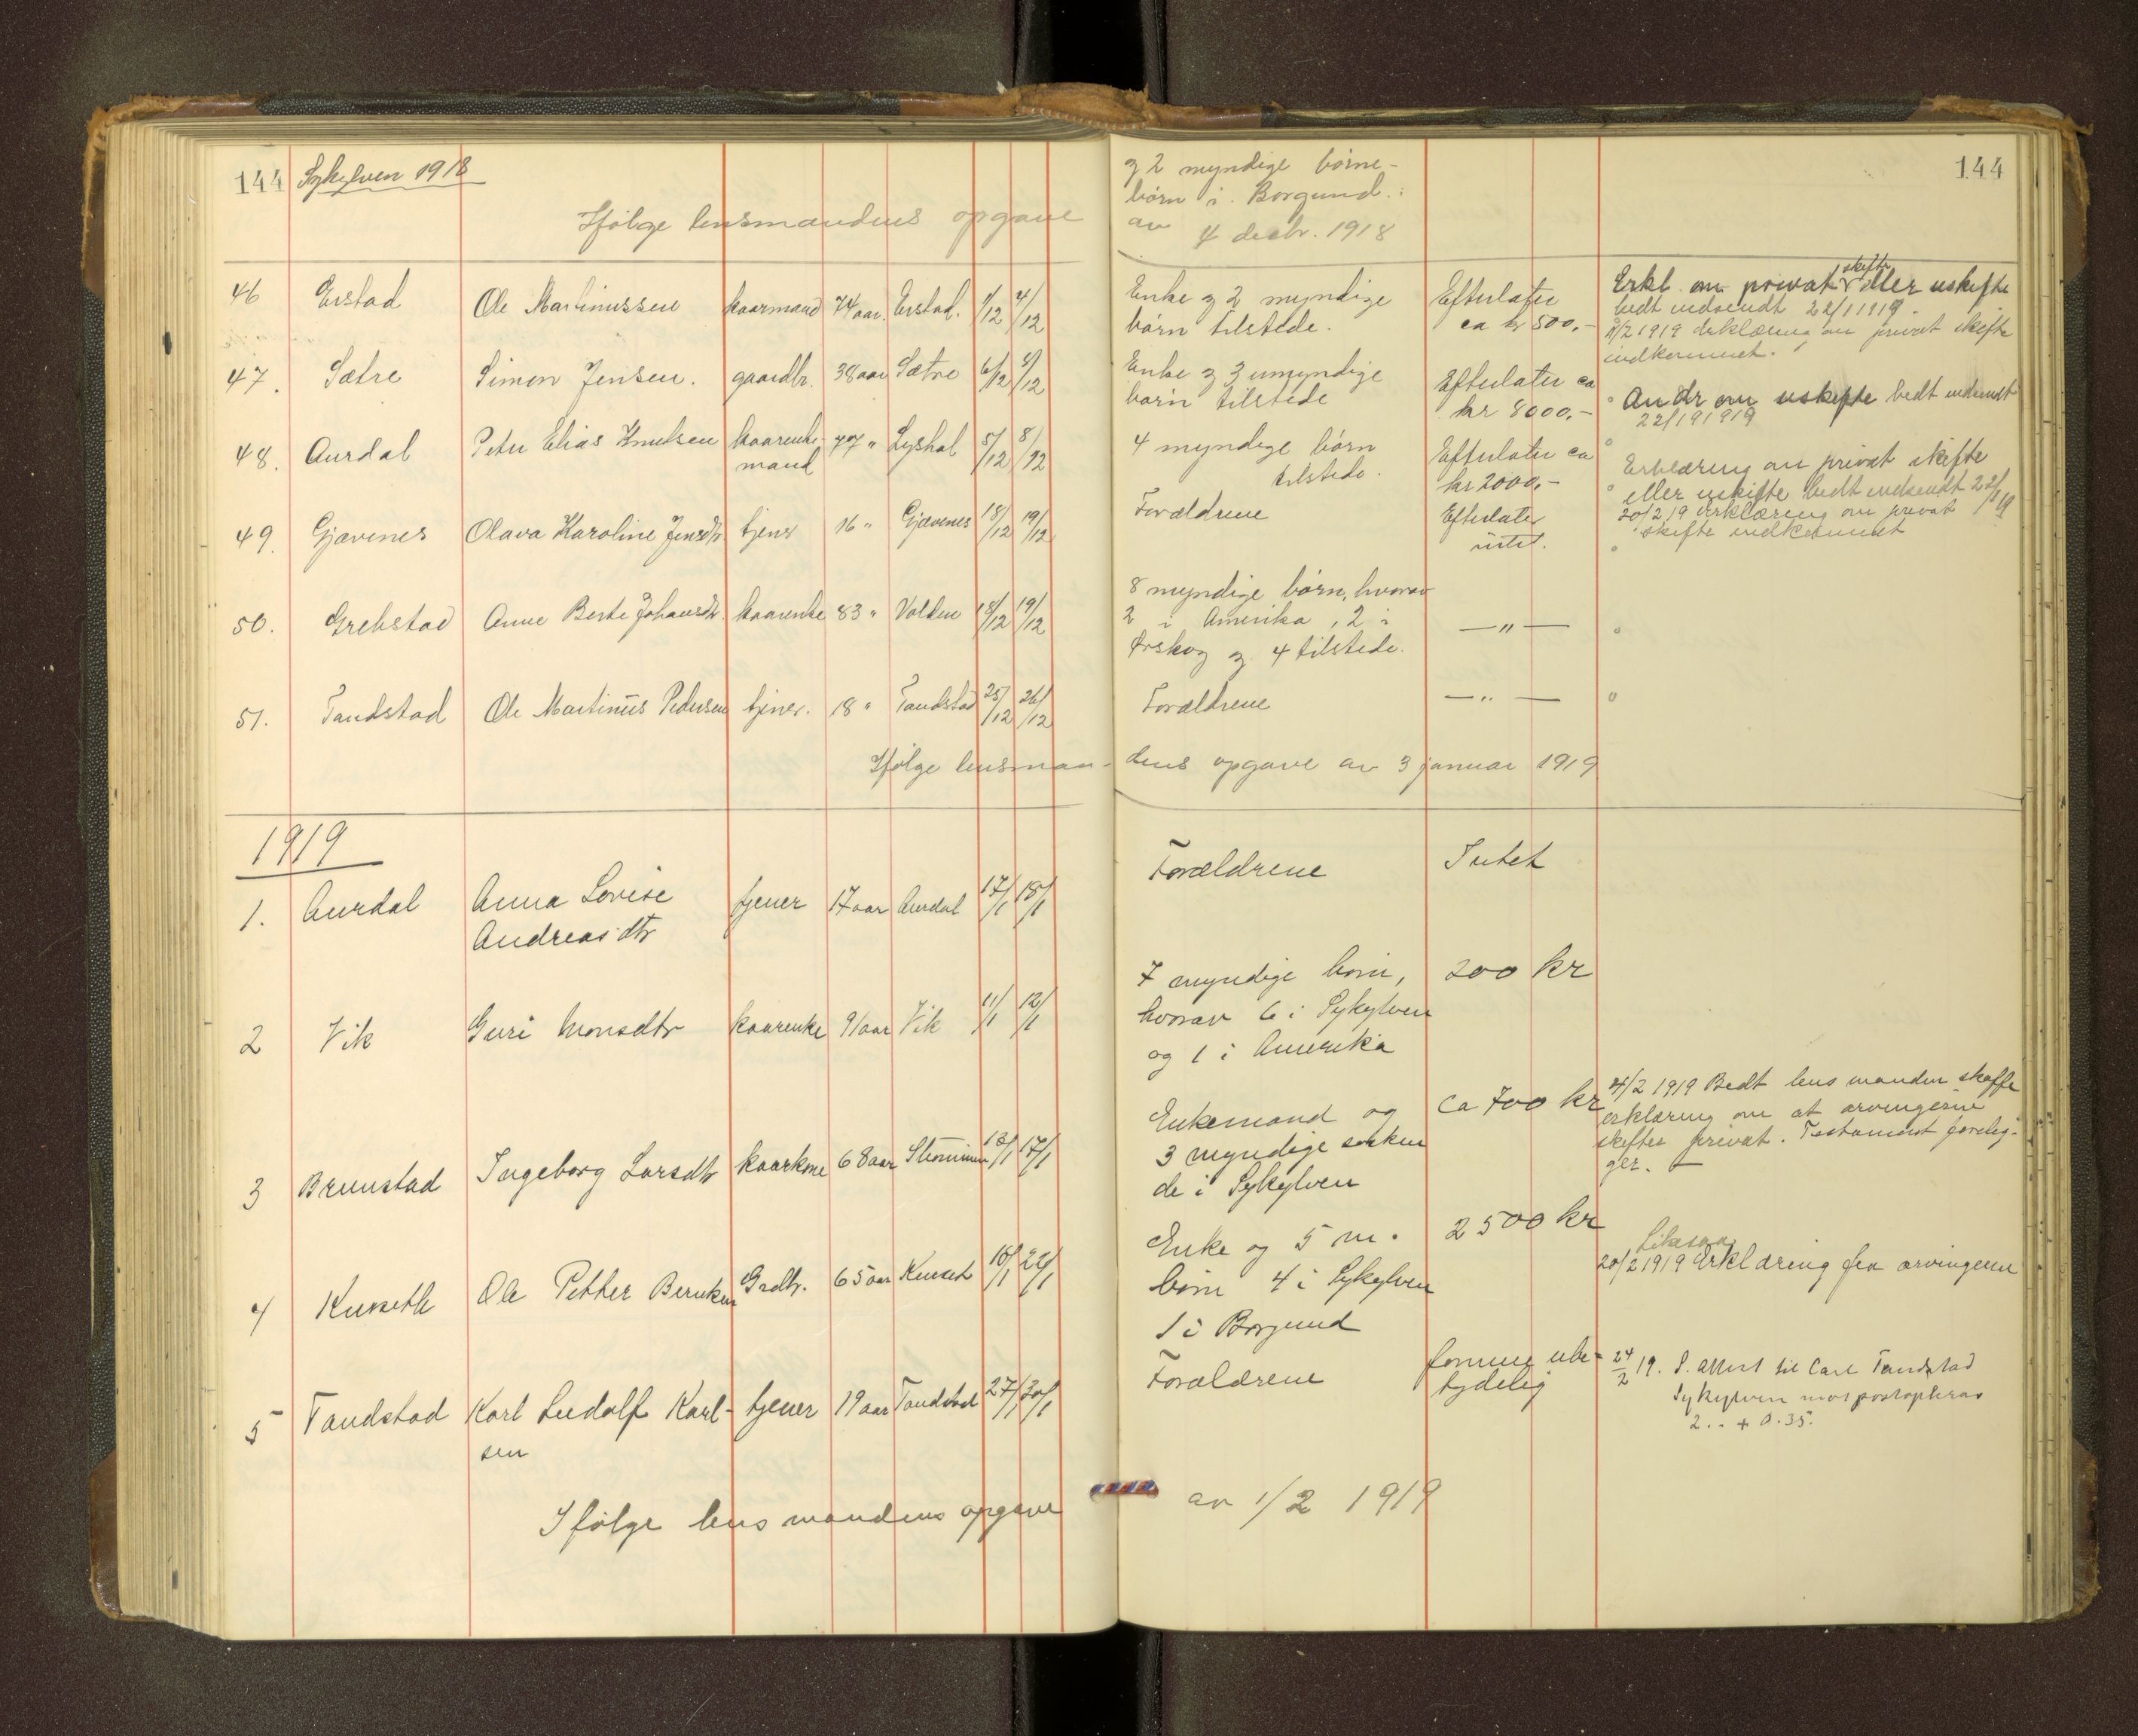 144 Sykylven 1918
Ifølge lensmandens opgave
46 Erstad Ole Martinussen kaarmand 74 aar. Erstad. 1/12 4/12
47. Sætre Simon Jensen. gaardbr. 38 aar Sætre 6/12 8/12
48. Aurdal Peter Elias Knutsen kaarenke- 77 " Lyshol 5/12 8/12
mand
49. Gjævenes Olava Karoline Jensdtr. tjener 16 " Gjævenes 18/12 19/12
50. Grebstad Anne Berte Johansdtr. kaarenke 83 " Velden 18/12 19/12
51. Tandstad Ole Martinus Pedersen tjener. 18 " Tandstad 25/12 26/12
Ifølge lensman-
1919
1. Aurdal Anna Lovise tjener 17 aar Aurdal 17/1 18/1
Andreasdtr
2 Vik Guri Monsdtr kaarenke 91 aar Vik 11/1 12/1
3 Brunstad Ingeborg Larsdtr kaarkone 68 aar Strømmen 13/1 17/1
4 Kurseth Ole Petter Berntsen Grdbr. 65 aar Kurset 16/1 22/1
5 Tandstad Karl Ludolf Karl- tjener 19 aar Tandstad 27/1 30/1
sen
Ifølge lensmandens opgave
144
og 2 myndige børne-
børn i Borgund.
av 4 decbr. 1918
Enke og 2 myndige Efterlater Erkl. om privat skifte eller uskifte
børn tilstede. ca kr 500,- bedt indsendt 22/1 1919.
11/2 1919 Erklæring om privat skifte
indkommet.
Enke og 3 umyndige Efterlater ca
børn tilstede kr 8000,- Andr om uskifte bedt indsendt
22/1 1919
4 myndige børn Efterlater ca Erklæring om privat skifte
tilstede. kr 2000,- eller uskifte bedt indsendt 22/1 19
Forældrene Efterlater 20/2 19 Erklæring om privat
intet. skifte indkommet
8 myndige børn, hvorav
2 i Amerika, 2 i — " —
Ørskog og 4 tilstede.
Forældrene — " —
dens opgave av 3 januar 1919
Forældrene Intet
7 myndige børn, 200 kr
hvorav 6 i Sykylven
og 1 i Amerika
Enkemand og ca 700 kr 4/2 1919 Bedt lensmanden skaffe
3 myndige søsken erklæring om at arvingerne
de i Sykylven skifter privat. Testament forelig-
ger.
Enke og 5 m. 2500 kr
børn 4 i Sykylven 20/2 1919 Erklæring fra arvingerne
1 i Borgund
Forældrene formue ube- 24/2 19. S. attest til Carl Tandstad
tydelig Sykylven mot postopkrav
2.- + 0.35.
av 1/2 1919